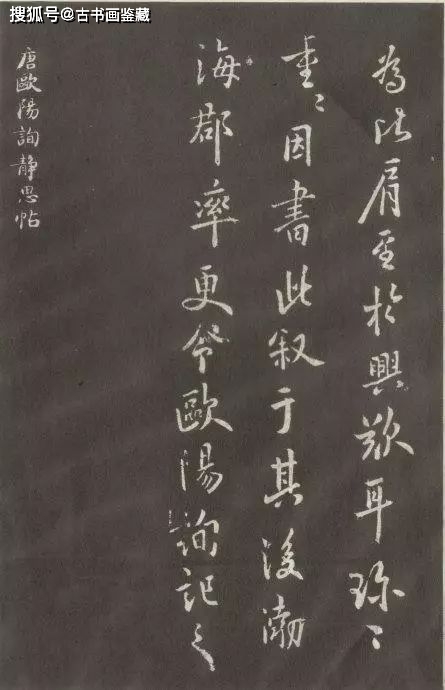 搜狐号@古书画鉴藏
為比肩至於興歎耳珍〻
重〻因書此叙于其後渤
海郡率更令歐陽詢記之
唐歐陽詢静思帖